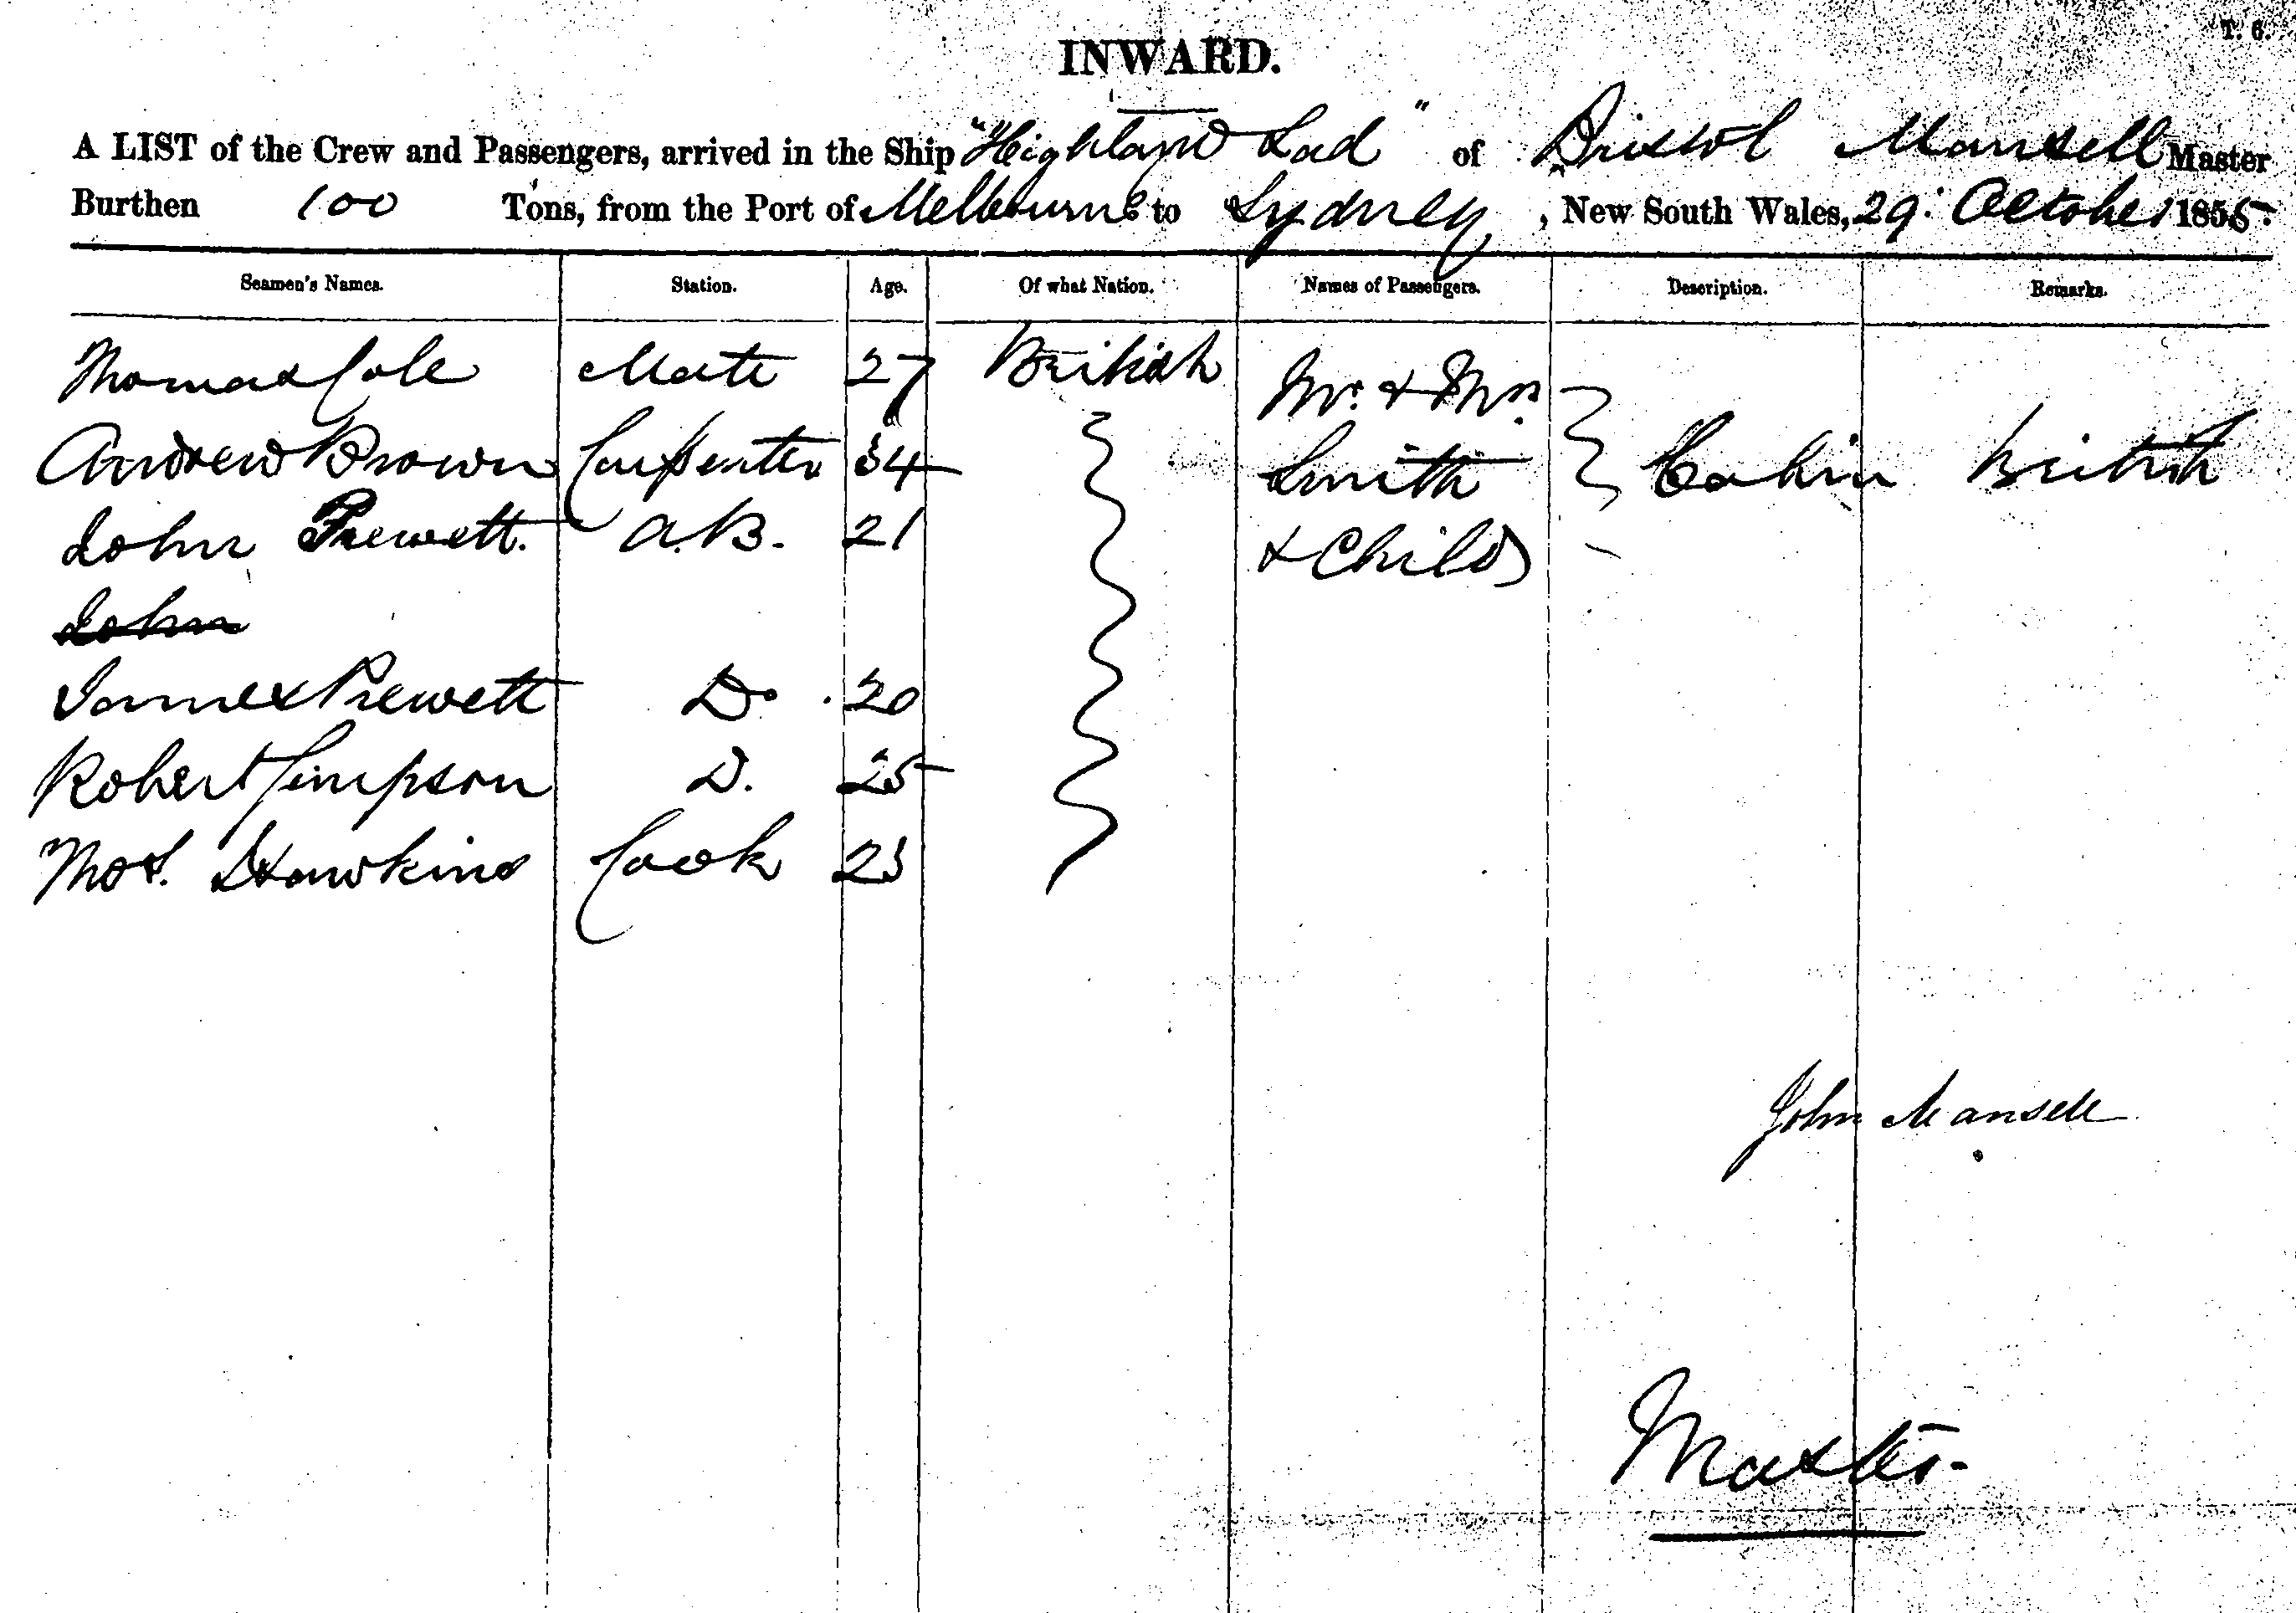 T. 6.
INWARD.
A LIST of the Crew and Passengers, arrived in the Ship "Highland Lad" of Bristol Mansell Master
Burthen 100 Tons, from the Port of Melbourne to Sydney, New South Wales, 29. October 1855.
Seamen's Names. Station. Age. Of what Nation. Names of Passengers. Description. Remarks.
Thomas Cole Mate 27 British Mr. & Mrs.
Andrew Brown Carpenter 34 Smith Cabin British
John Prewett. A.B. 21 & Child
John
James Prewett Do. 20
Robert Simpson D. 25
Thos. Hawkins Cook 23
John Mansell
Master